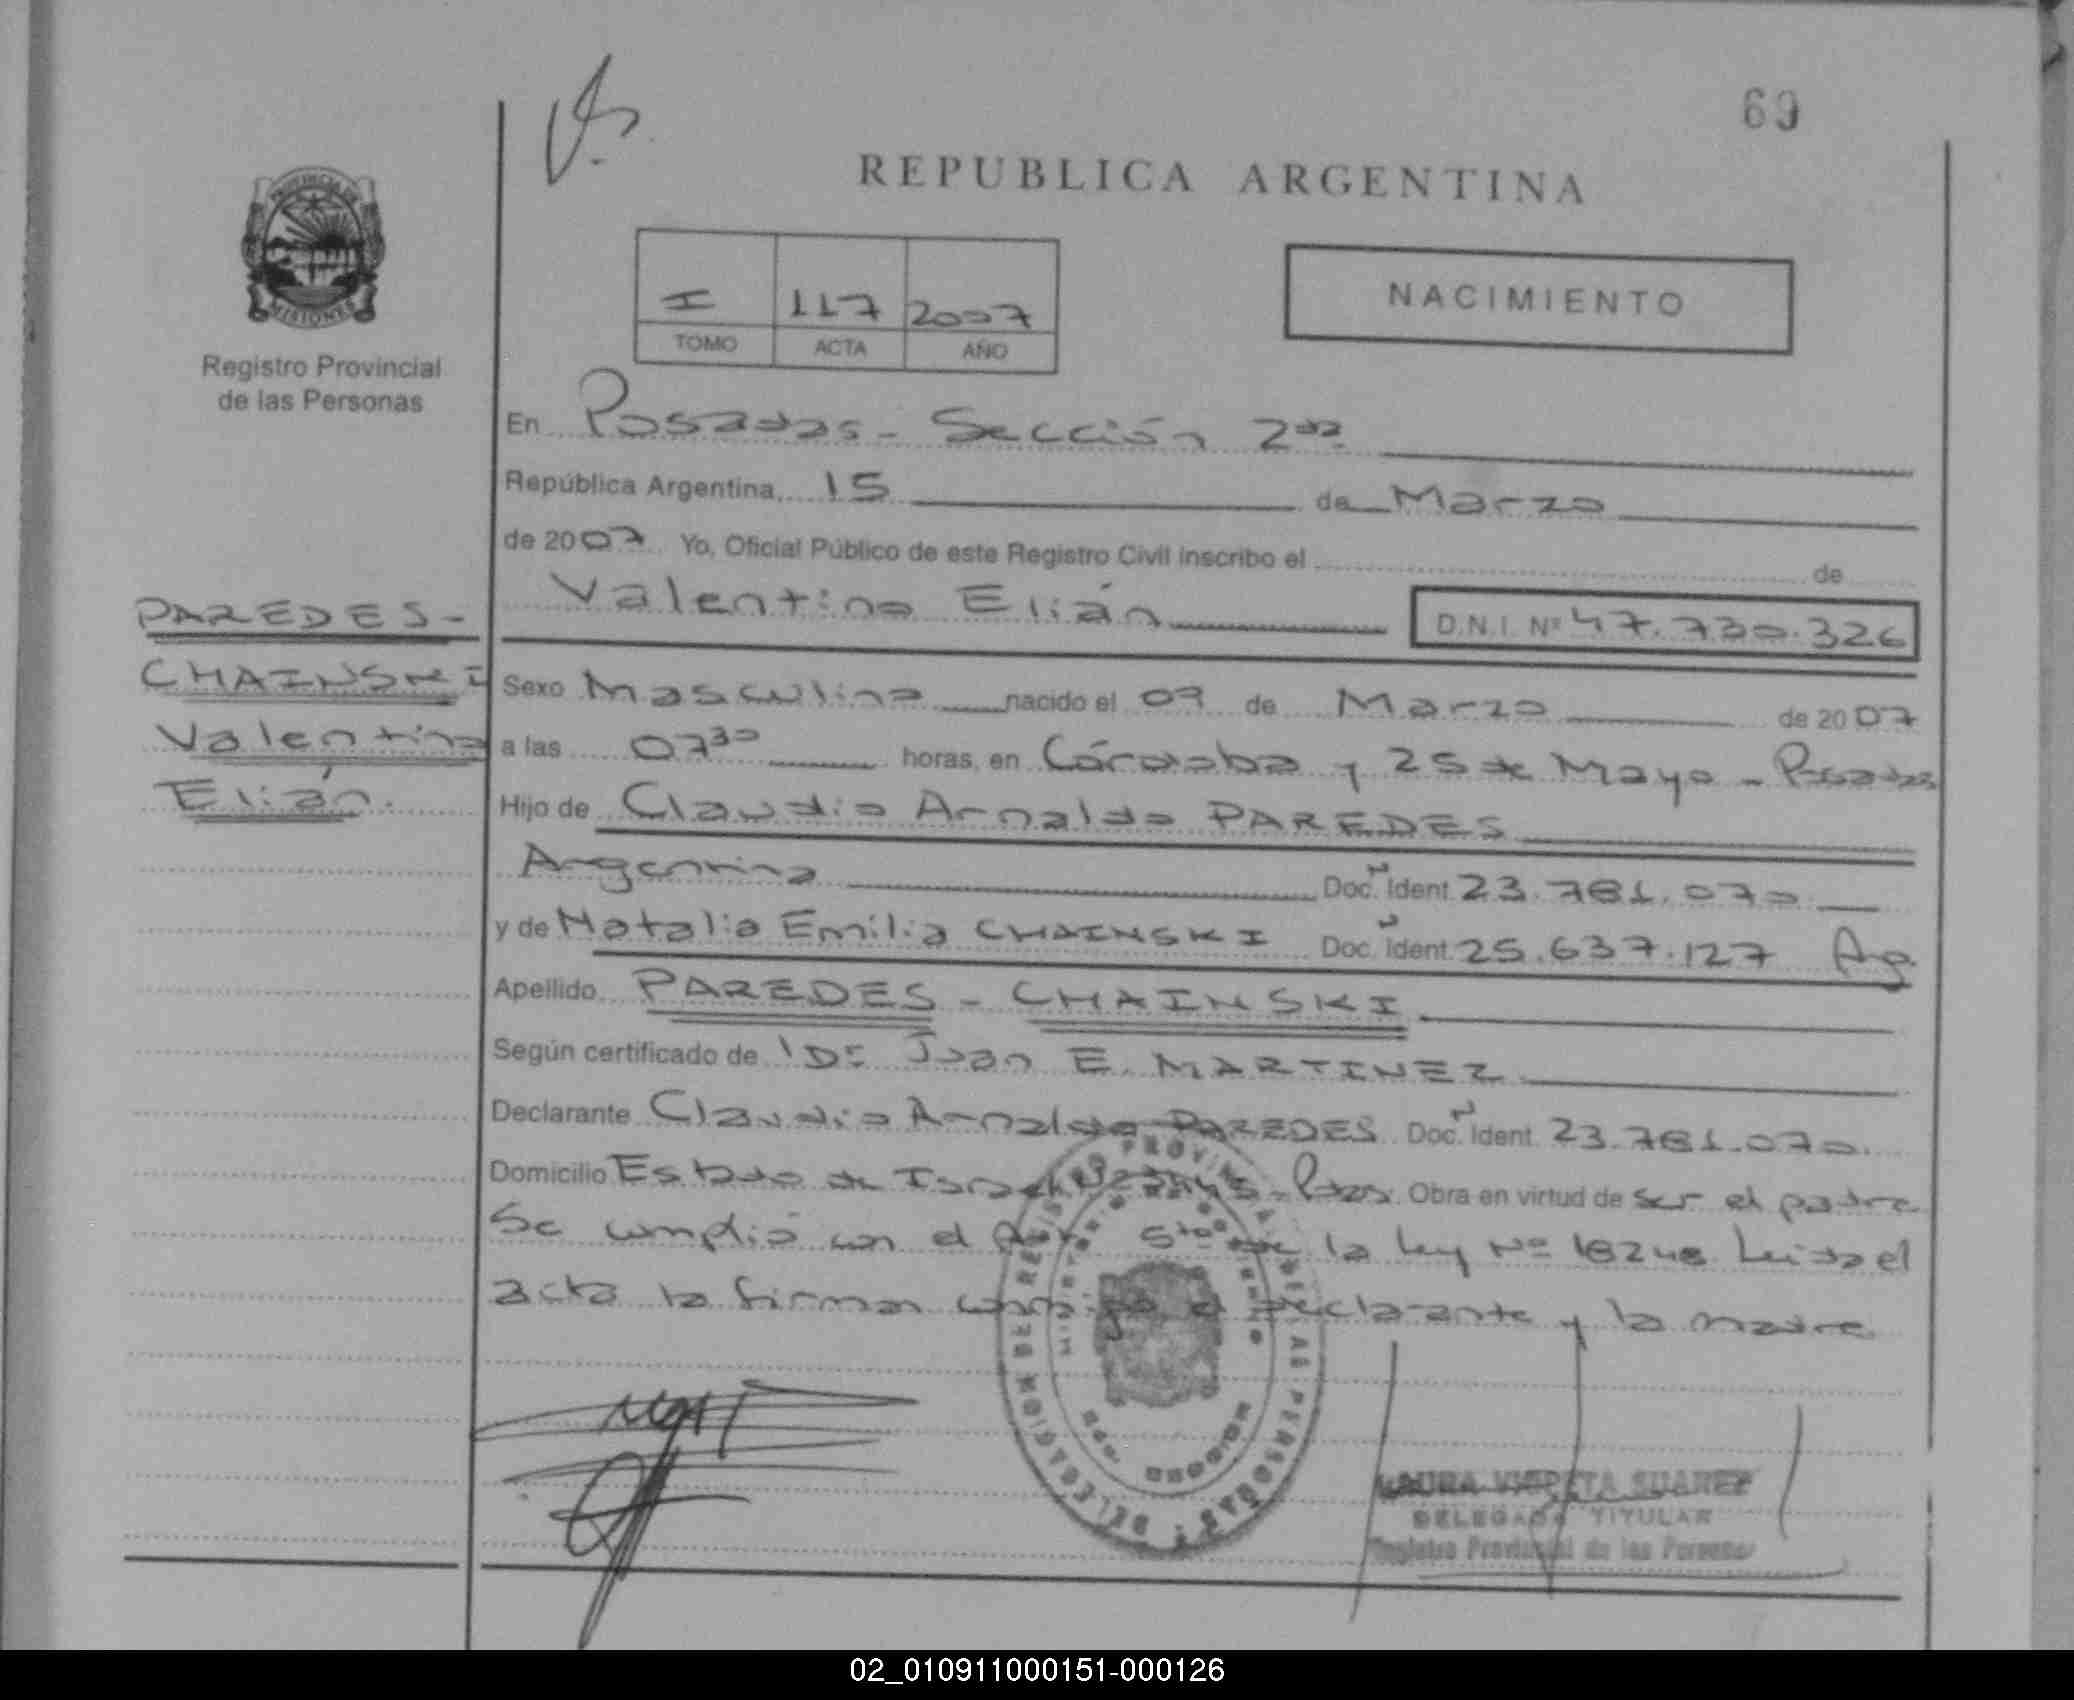 69
REPUBLICA ARGENTINA
PROVINCIA DE
MISIONES
Registro Provincial
de las Personas
I 117 2007
TOMO ACTA AÑO
NACIMIENTO
En Posadas - Sección 2da
República Argentina, 15 de Marzo
de 2007 Yo, Oficial Público de este Registro Civil inscribo el de
Valentino Elián D.N.I. Nº 47.730.326
PAREDES -
CHAINSKI
Valentino
Elián.
Sexo Masculino nacido el 09 de Marzo de 2007
a las 07 30 horas, en Córdoba y 25 de Mayo - Posadas
Hijo de Claudio Arnaldo PAREDES
Argentina Doc. Ident. 23.781.070
y de Natalia Emilia CHAINSKI Doc. Ident. 25.637.127 Arg.
Apellido PAREDES - CHAINSKI
Según certificado de Dr Juan E. MARTINEZ
Declarante Claudio Arnaldo PAREDES Doc. Ident. 23.781.070
Domicilio Estado de Israel - Pdas. Obra en virtud de ser el padre
Se cumplió con el Art. 5to de la ley Nº 18248 Leida el
acta la firman conmigo el declarante y la madre
DELEGACION REGISTRO PROVINCIAL DE LAS PERSONAS
MINISTERIO DE GOBIERNO
MISIONES
LAURA SUAREZ
DELEGADA TITULAR
Registro Provincial de las Personas
02_010911000151-000126